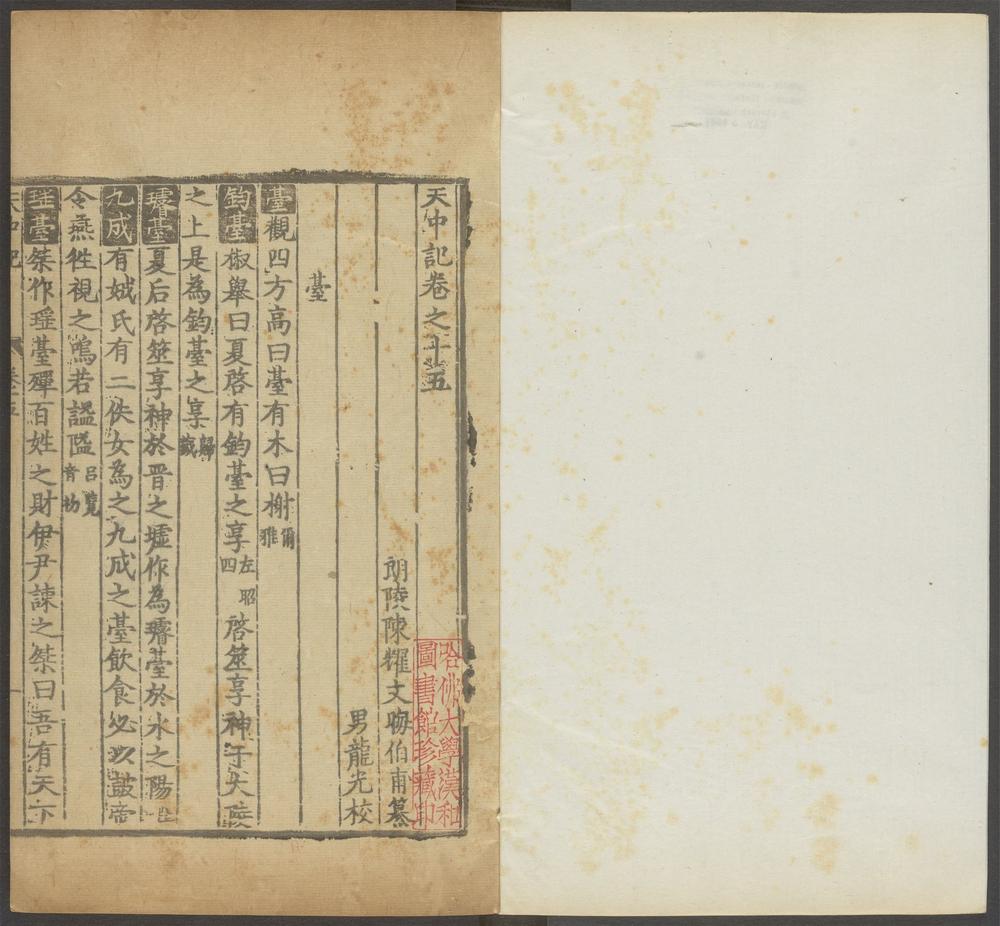 天中記卷之十五
朗陵陳耀文晦伯甫纂
男龍光校
臺
臺觀四方高曰臺有木曰榭爾雅
鈞臺椒舉曰夏啓有鈞臺之享左昭四啓筮享神于大陵
之上是為鈞臺之享歸藏
璿臺夏后啓筮享神於晋之墟作為璿臺於水之陽
九成有娀氏有二佚女為之九成之臺飲食必以鼓帝
令燕往視之鳴若謚隘呂覽音初
瑶臺桀作瑶臺殫百姓之財伊尹諫之桀曰吾有天下
哈佛大學漢和
圖書館珍藏印